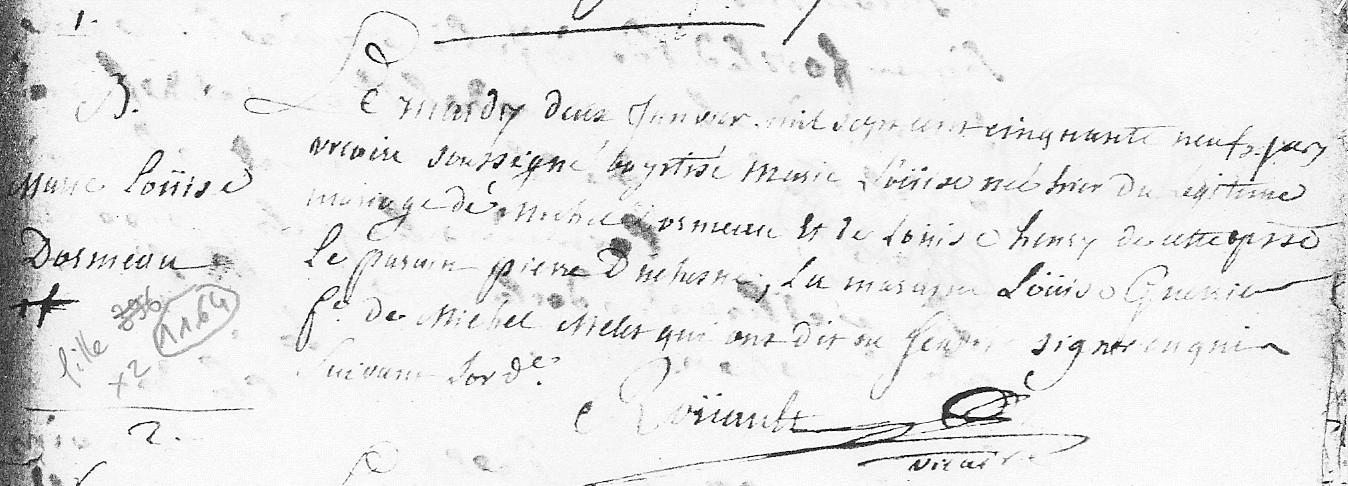 1.
B.
Marie Loüise
Dormeau
fille 396
1164
x2
Le mardy deux Janvier mil sept cent cinquante neuf par
vicaire soussigné baptisé Marie Loüise né hier du legitime
mariage de Michel Dormeau Et de Loüise henry de cette psse
Le parain pierre Duchesne, La maraine Loüise
fe. de Michel Melet qui ont dit ne scavoir signer enquis
Suivant Lord.e
Roüault
vicaire
2.